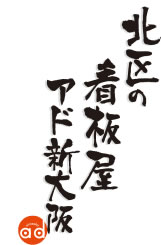 北区の
看板屋
アド新大阪
ad